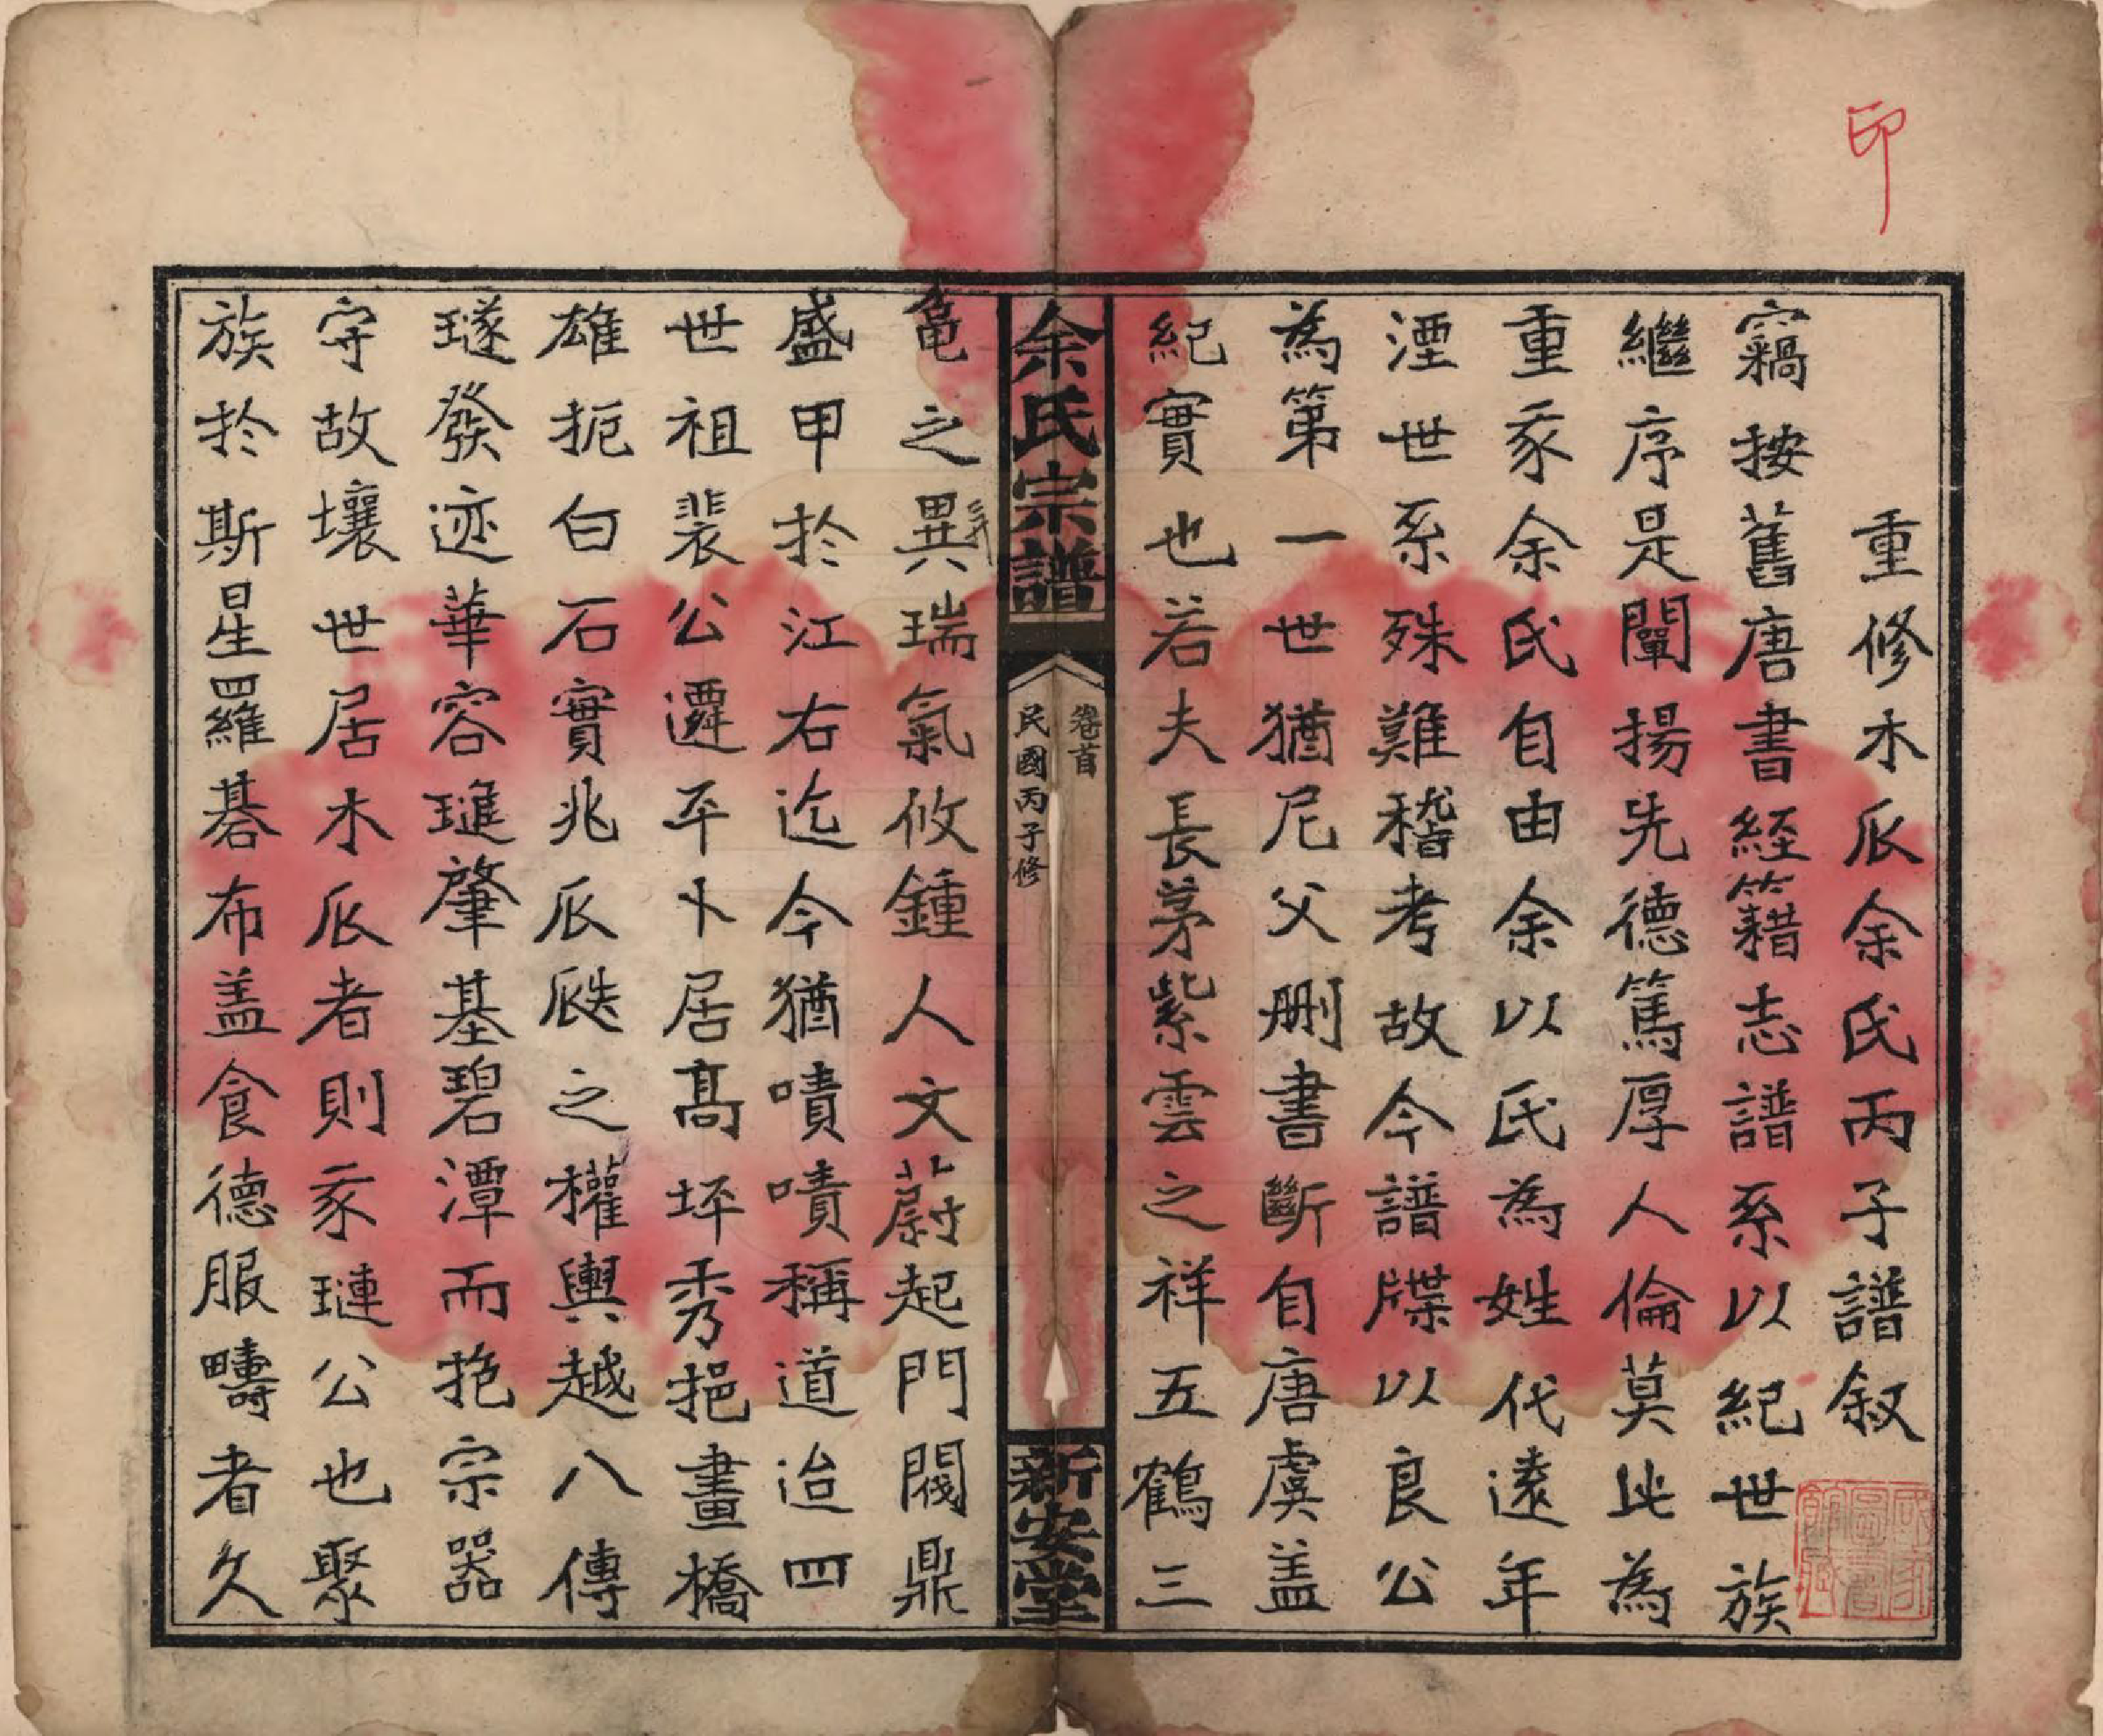 印
重修木瓜余氏丙子譜叙
竊按舊唐書經籍志譜系以紀世族
繼序是闡揚先德篤厚人倫莫此為
重豕余氏自由余以氏為姓代遠年
湮世系殊難稽考故今譜牒以良公
為第一世猶尼父刪書斷自唐虞盖
紀實也若夫長茅紫雲之祥五鶴三
余氏宗譜
卷首
民國丙子修
新安堂
黿之異瑞氣攸鍾人文蔚起門閥鼎
盛甲於江右迄今猶嘖嘖稱道迨四
世祖裴公遷平卜居髙坪秀挹畫橋
雄扼白石實兆瓜瓞之權輿越八傳
璲發迹華容璡肇基碧潭而抱宗器
守故壤世居木瓜者則豕璉公也聚
族扵斯星羅碁布盖食德服疇者久